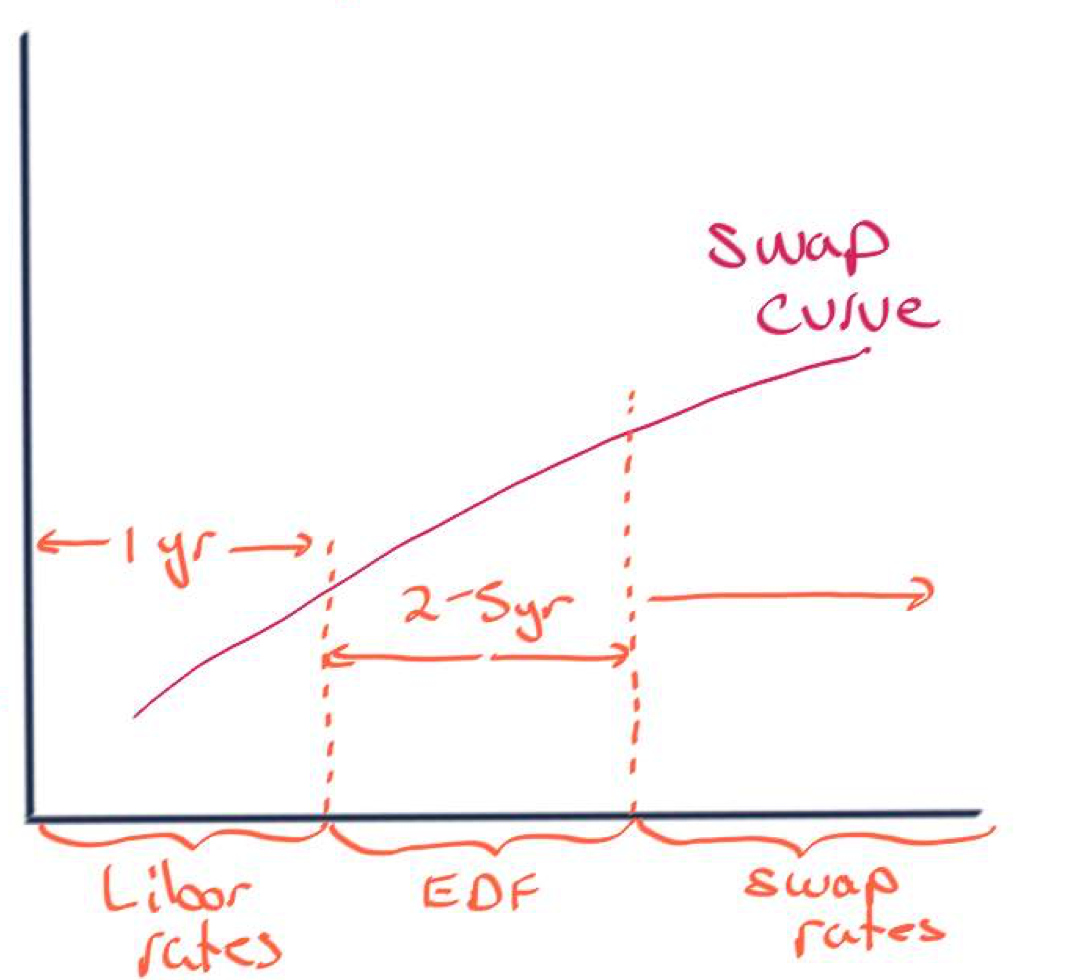 Swap
curve
1 yr
2-5yr
Libor
rates
EDF
swap
rates